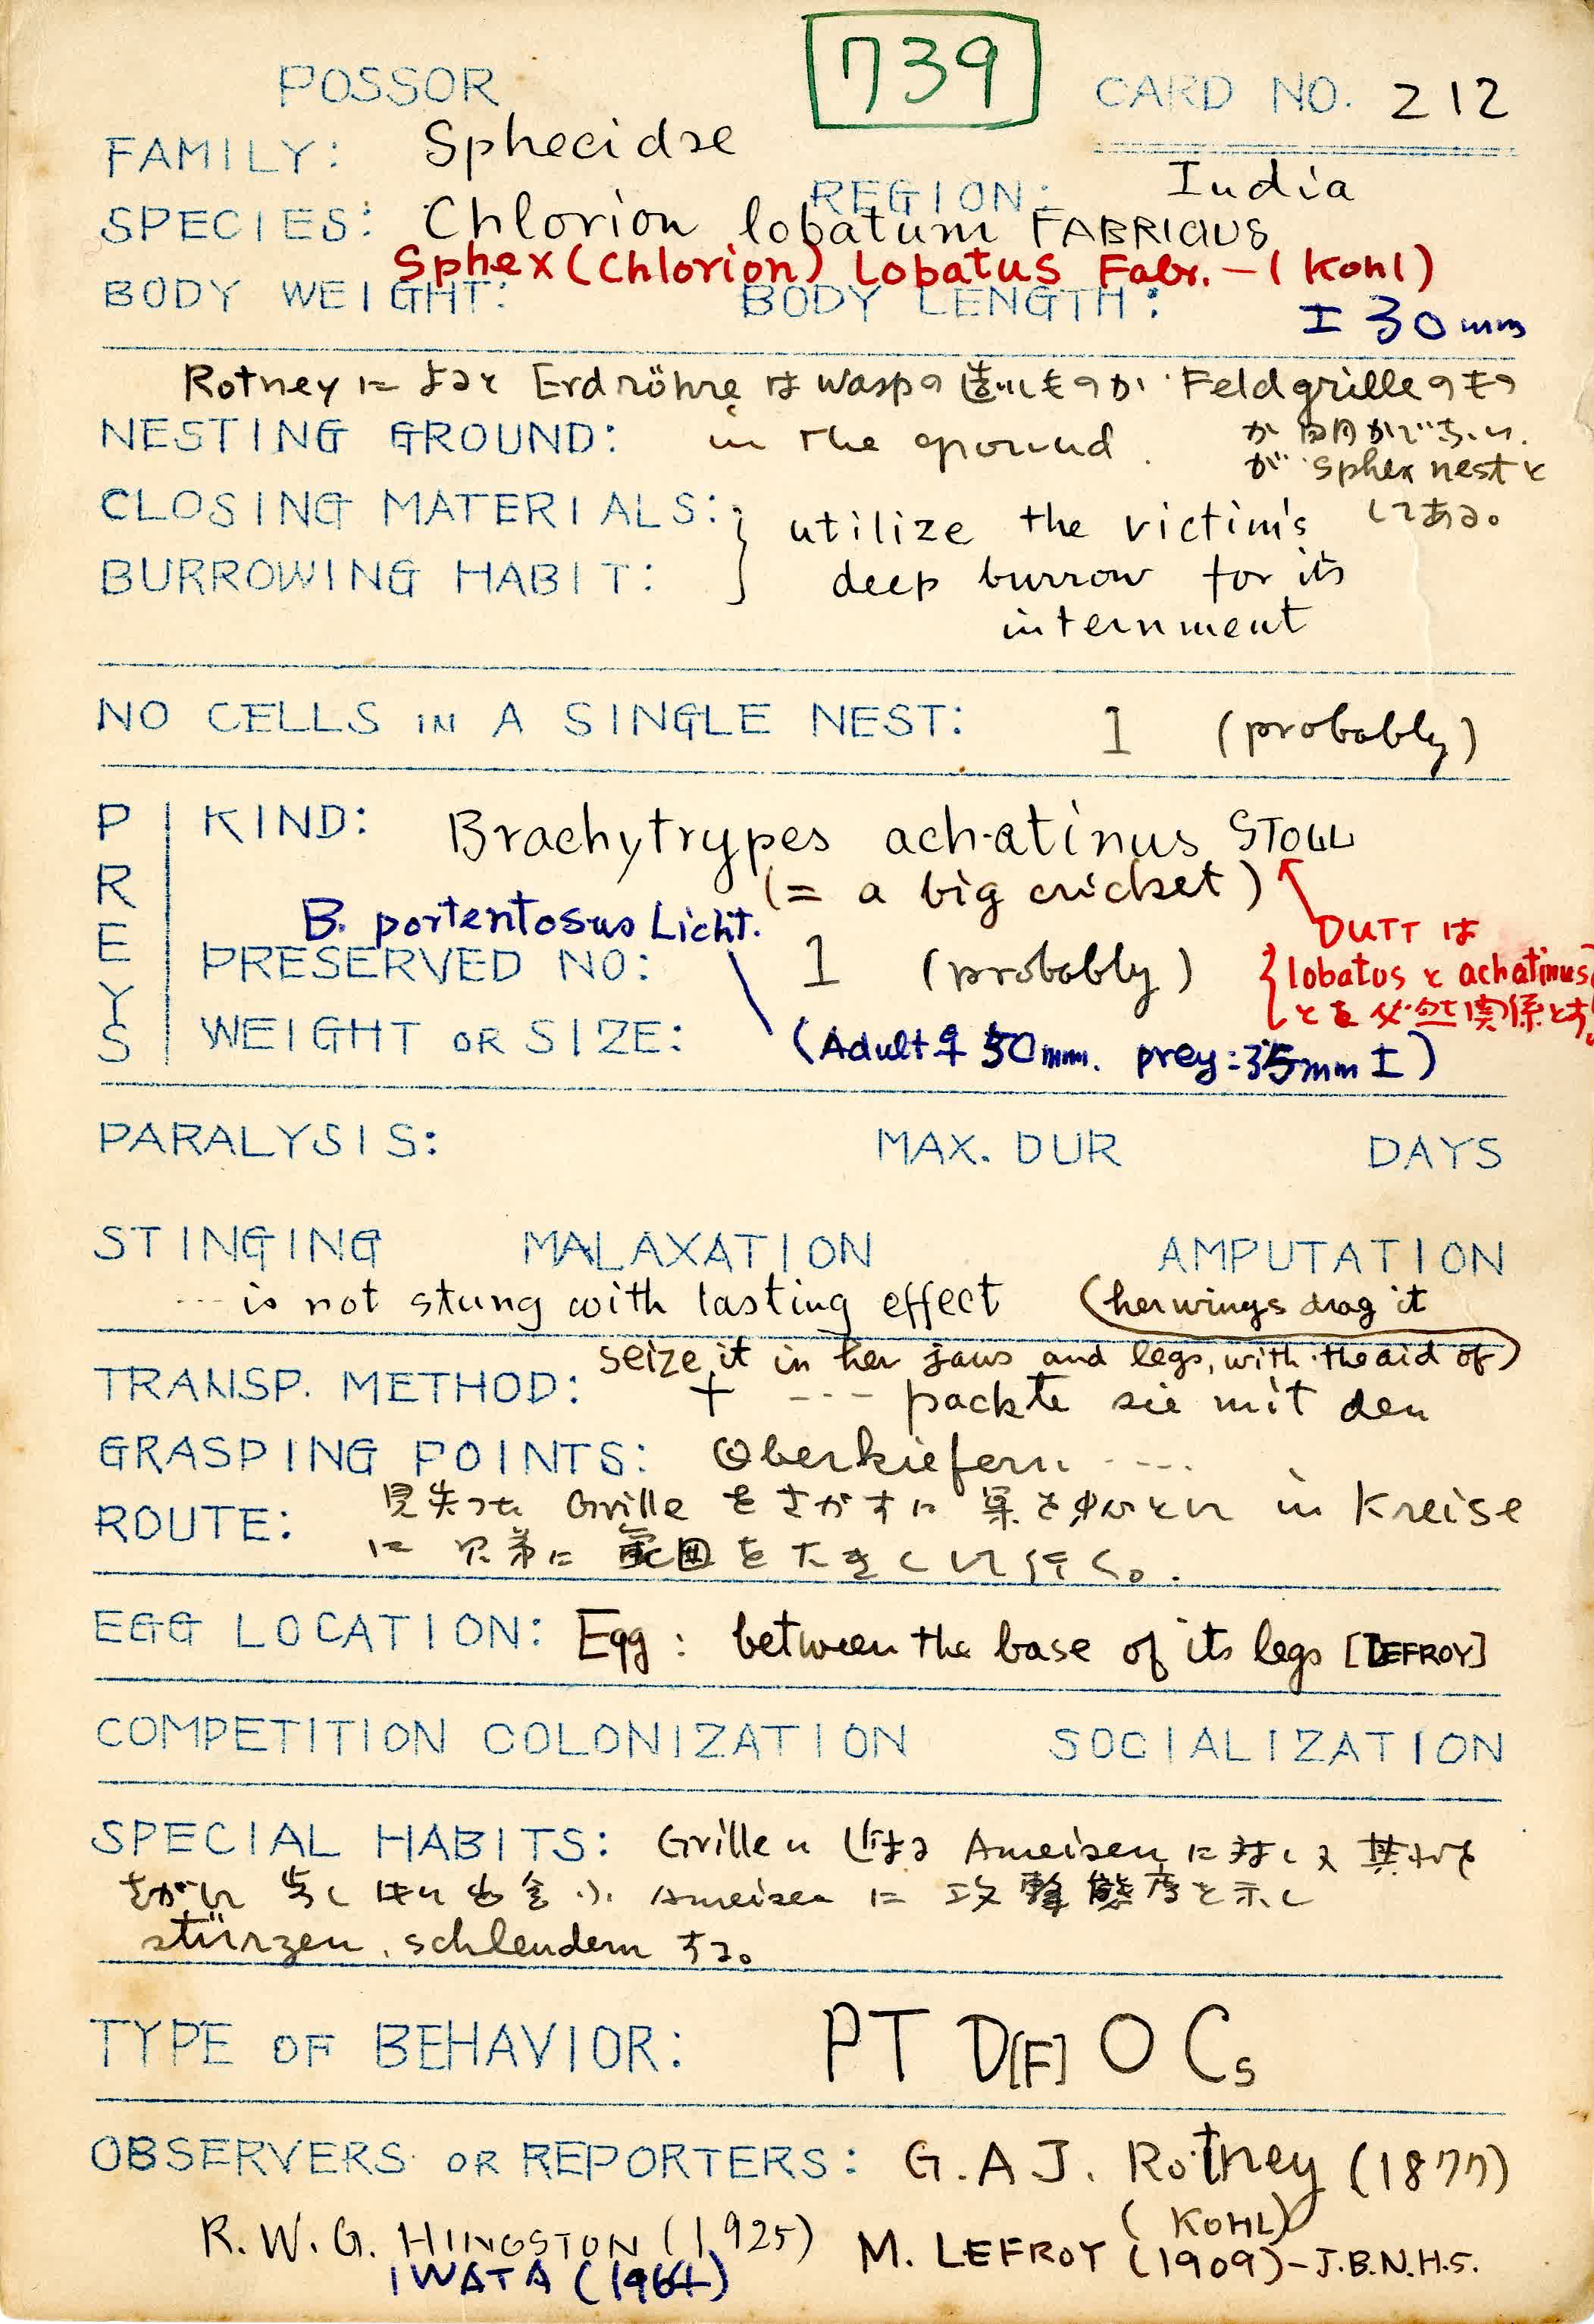 739
POSSOR
CARD NO. 212
FAMILY: Sphecidae
REGION: India
SPECIES: Chlorion lobatum FABRICIUS
Sphex (Chlorion) Lobatus Fabr. — (Kohl)
BODY WEIGHT: BODY LENGTH: ± 30 mm
Rotney によると Erdröhre は wasp の造ったものか Feldgrille のもの
か 明かでない.
NESTING GROUND: in the ground.
が sphex nest と
してある。
CLOSING MATERIALS: } utilize the victim's
BURROWING HABIT: deep burrow for its
internment
NO CELLS IN A SINGLE NEST: 1 (probably)
PREYS
KIND: Brachytrypes achatinus STOLL
(= a big cricket)
B. portentosus Licht.
DUTT は
{ lobatus と achatinus
とを必然関係とす
PRESERVED NO: 1 (probably)
WEIGHT OR SIZE: (Adult ♀ 50mm. prey: 35mm ±)
PARALYSIS: MAX. DUR DAYS
STINGING MALAXATION AMPUTATION
--- is not stung with lasting effect
(her wings drag it
seize it in her jaws and legs, with the aid of)
TRANSP. METHOD: + --- packte sie mit den
GRASPING POINTS: Oberkiefern ----
ROUTE: 見失った Grille をさがすに 巣を中心とし in Kreise
に 次第に 範囲を大きくして行く。
EGG LOCATION: Egg: between the base of its legs [LEFROY]
COMPETITION COLONIZATION SOCIALIZATION
SPECIAL HABITS: Grille Ameisen に対して
Ameisen に 攻撃態度を示し
stürzen, schleudern する。
TYPE OF BEHAVIOR: PT D[F] O Cs
OBSERVERS OR REPORTERS: G. A. J. Rotney (1877)
(KOHL)
R. W. G. HINGSTON (1925) M. LEFROY (1909)-J.B.N.H.S.
IWATA (1964)